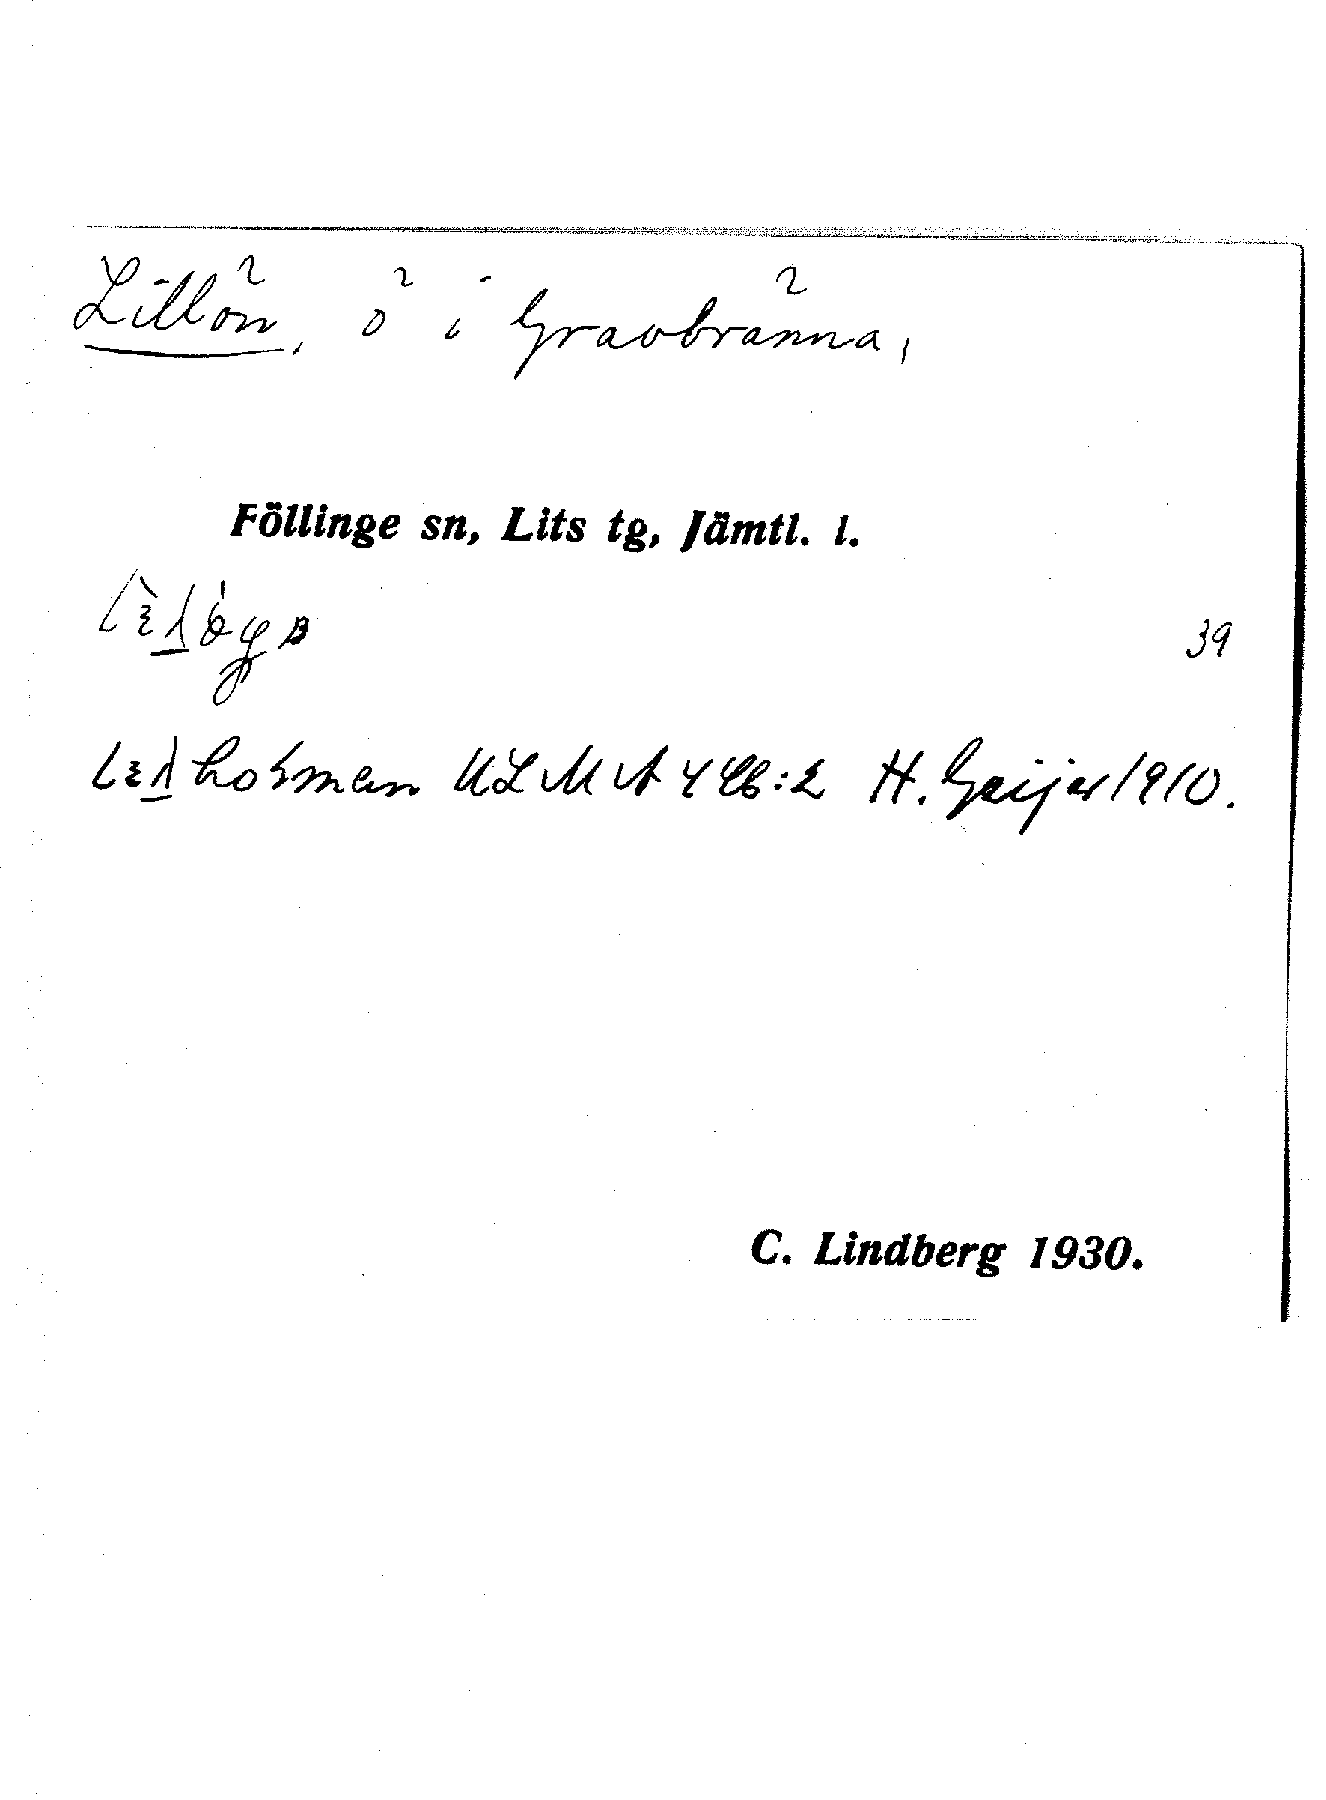 Lillön, ö i Gravbränna,
Föllinge sn, Lits tg, Jämtl. l.
39
ULMA 446:2 H. Geijer 1910.
C. Lindberg 1930.